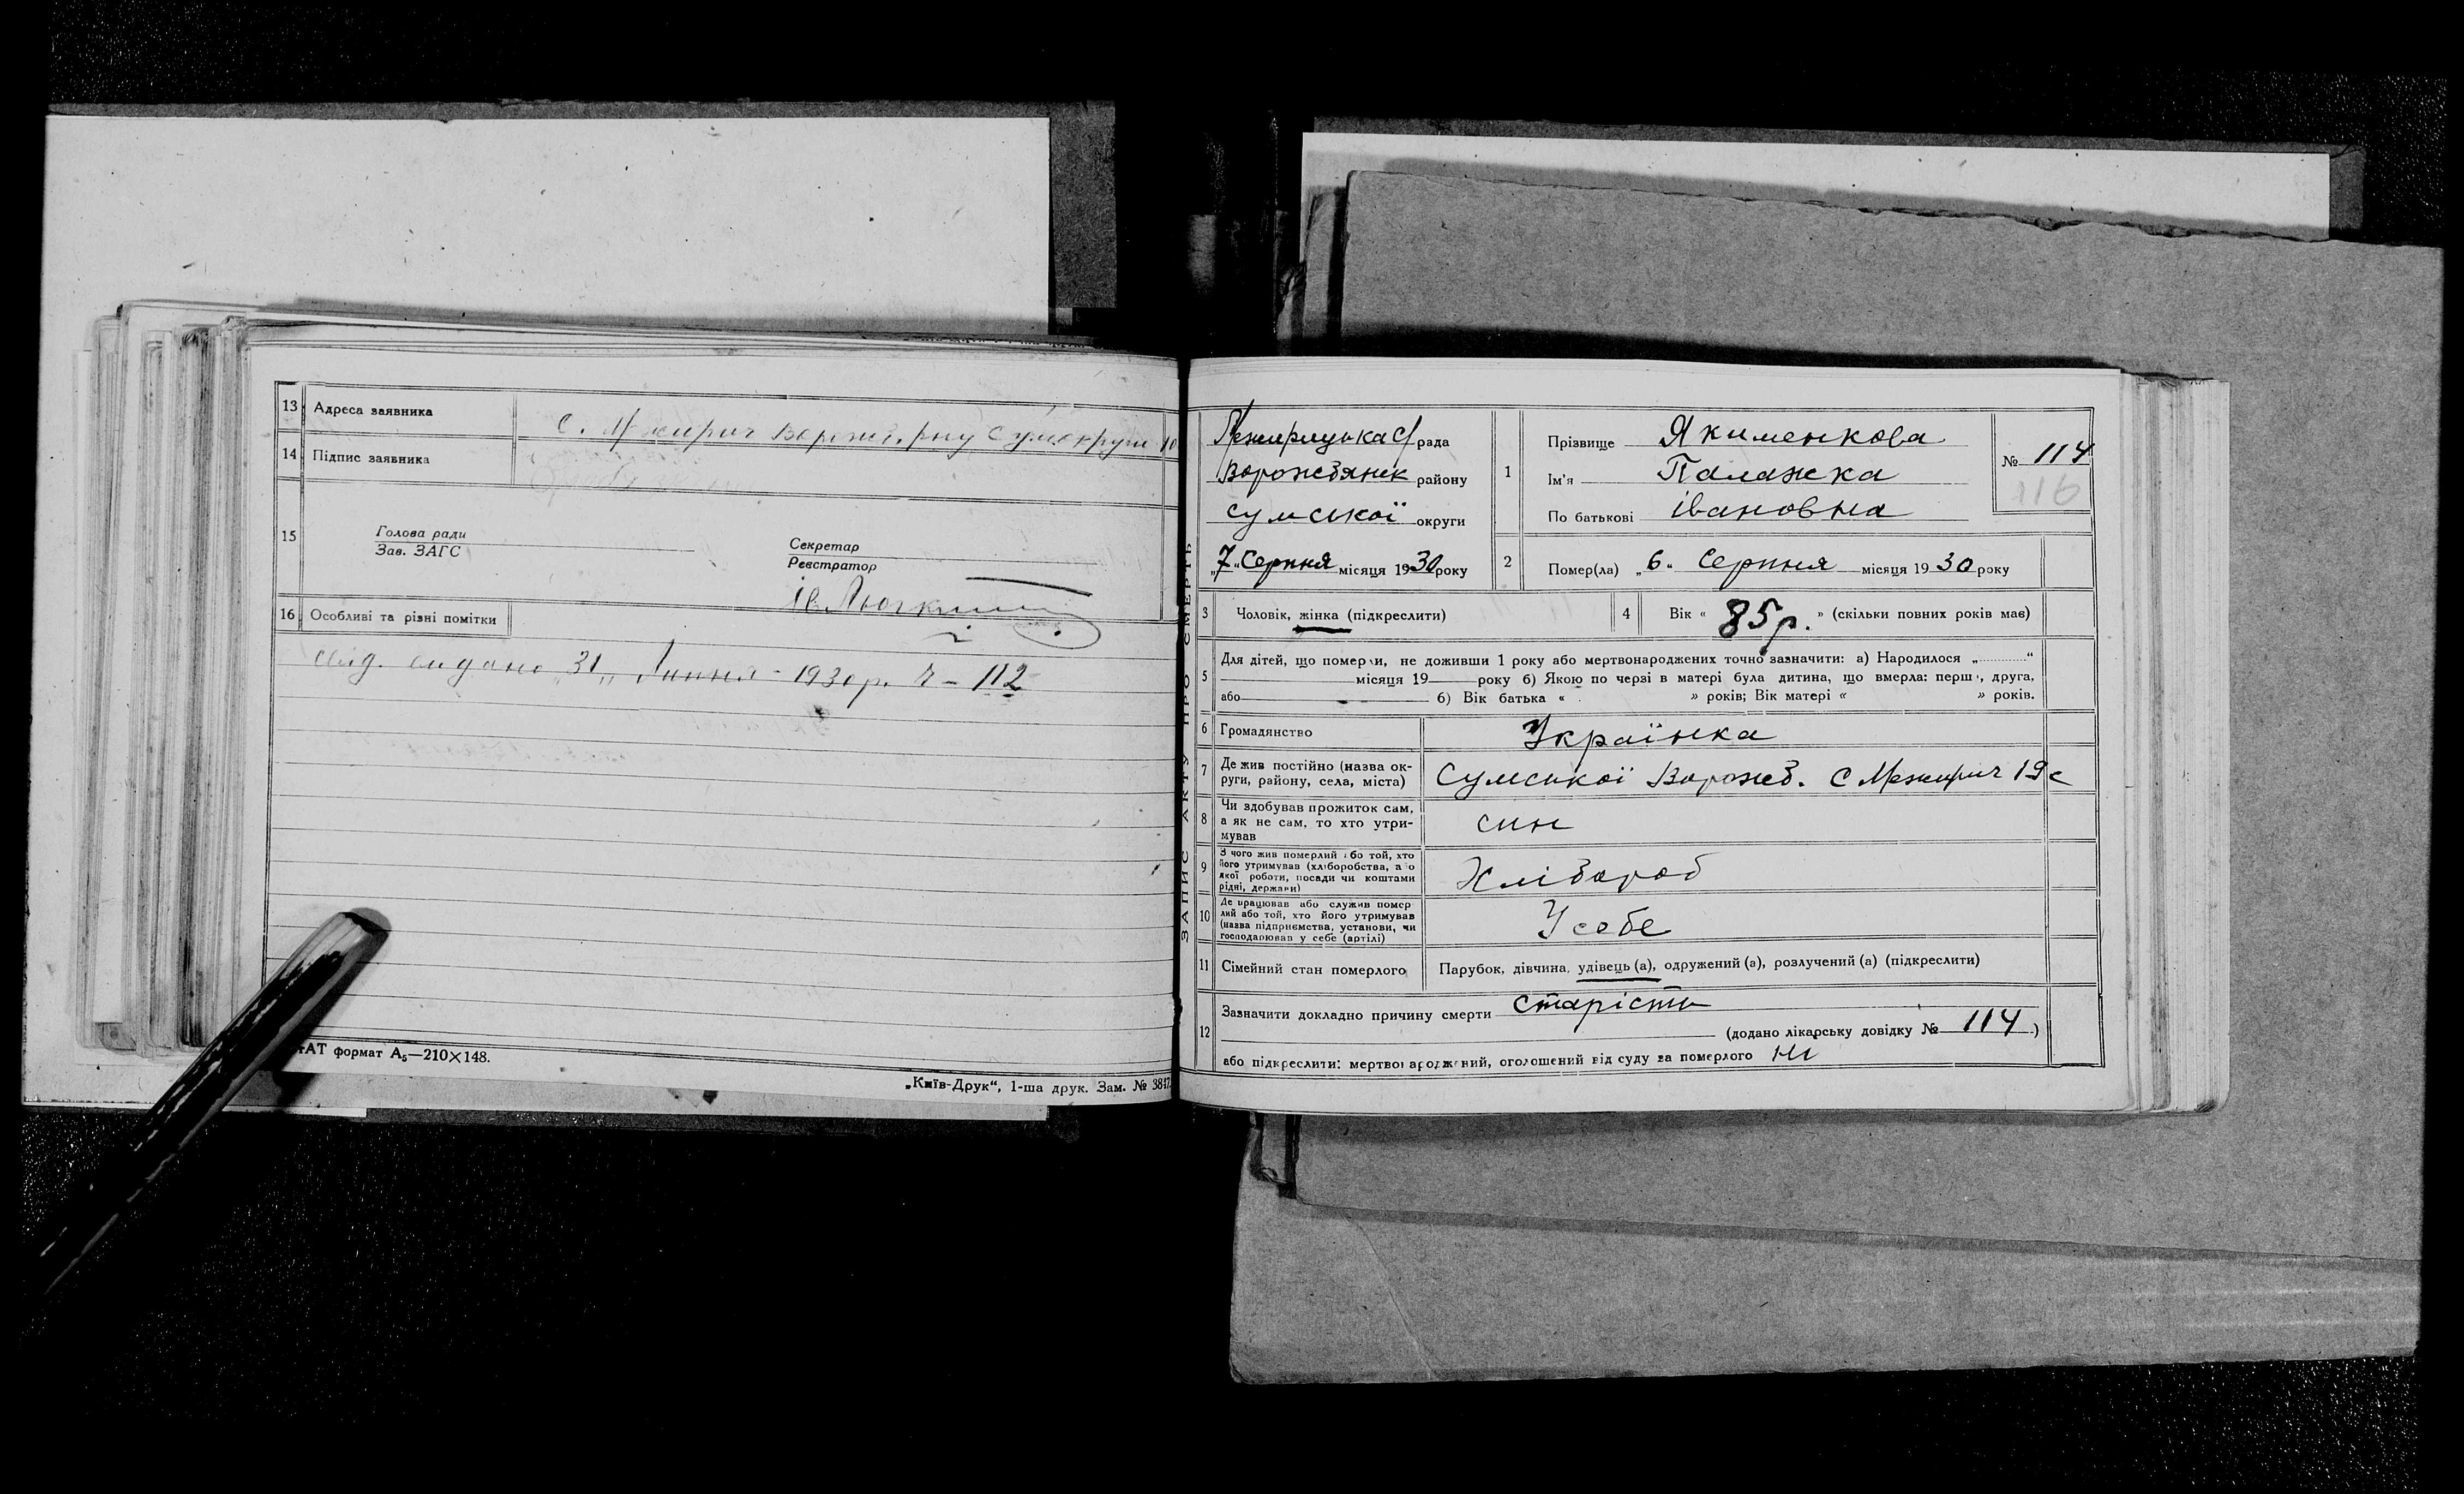 13 Адреса заявника с. Межирич Ворожб. р-ну Сумокруги 10
14 Підпис заявника
15 Голова ради
Зав. ЗАГС
Секретар
Реєстратор
16 Особливі та різні помітки
свід. видано „31„ Липня - 1930 р. Ч - 112
формат А5—210×148.
„Київ-Друк“, 1-ша друк. Зам. №
ЗАПИС АКТУ ПРО СМЕРТЬ
Межирицька С/рада
Ворожбянськ району
Сумської округи
„7“ Серпня місяця 1930 року
1 Прізвище Якименкова
Ім'я Палажка
По батькові Івановна
№ 114
116
2 Помер(ла) „6“ Серпня місяця 1930 року
3 Чоловік, жінка (підкреслити)
4 Вік « 85 р. » (скільки повних років має)
5 Для дітей, що померли, не доживши 1 року або мертвонароджених точно зазначити: а) Народилося „ “
місяця 19 року б) Якою по черзі в матері була дитина, що вмерла: перша, друга,
або б) Вік батька « » років; Вік матері « » років.
6 Громадянство Українка
7 Де жив постійно (назва округи, району, села, міста) Сумської Ворожб. с Межирич 19 с
8 Чи здобував прожиток сам, а як не сам, то хто утримував син
9 З чого жив померлий або той, хто його утримував (хліборобства, або якої роботи, посади чи коштами рідні, держави) Хлібороб
10 Де працював або служив померлий або той, хто його утримував (назва підприємства, установи, чи господарював у себе (артілі) У себе
11 Сімейний стан померлого Парубок, дівчина, удівець (а), одружений (а), розлучений (а) (підкреслити)
12 Зазначити докладно причину смерти старість
(додано лікарську довідку № 114)
або підкреслити: мертвонароджений, оголошений від суду за померлого ні